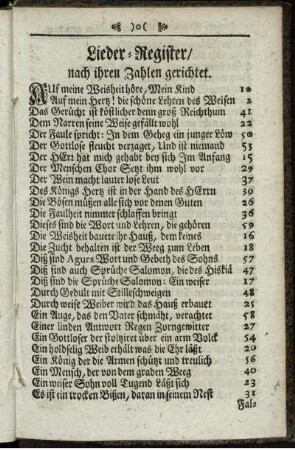 )o(
Lieder-Register/
nach ihren Zahlen gerichtet.
AUf meine Weisheit höre/ Mein Kind 10
Auf mein Hertz! die schöne Lehren des Weisen 2
Das Gerücht ist köstlicher denn groß Reichthum 41
Dem Narren seine Weise gefällt wohl 22
Der Faule spricht: In dem Geheg ein junger Löw 50
Der Gottlose fleucht verzaget/ Und ist niemand 53
Der HErr hat mich gehabt bey sich Im Anfang 15
Der Menschen Thor Setzt ihm wohl vor 29
Der Wein macht lauter lose Leut 37
Des Königs Hertz ist in der Hand des HErrn 30
Die Bösen müssen alle sich vor denen Guten 26
Die Faulheit nimmer schlaffen bringt 36
Dieses sind die Wort und Lehren, die gehören 59
Die Weisheit bauete ihr Hauß, dem keines 16
Die Zucht behalten ist der Weeg zum Leben 18
Diß sind Agurs Wort und Gebeth des Sohns 57
Diß sind auch Sprüche Salomon, die des Hiskiä 47
Diß sind die Sprüche Salomon: Ein weiser 17
Durch Gedult mit Stilleschweigen 48
Durch weise Weiber wird das Hauß erbauet 25
Ein Auge, das den Vater schmäht, verachtet 58
Einer linden Antwort Regen Zorngewitter 27
Ein Gottloser der stoltziret über ein arm Volck 54
Ein holdselig Weib erhält was die Ehr läßt 20
Ein König der die Armen schützt und treulich 56
Ein Mensch, der von dem graden Weeg 40
Ein weiser Sohn voll Tugend Läßt sich 23
Es ist ein trocken Bißen, daran in seinem Nest 31
Fal-